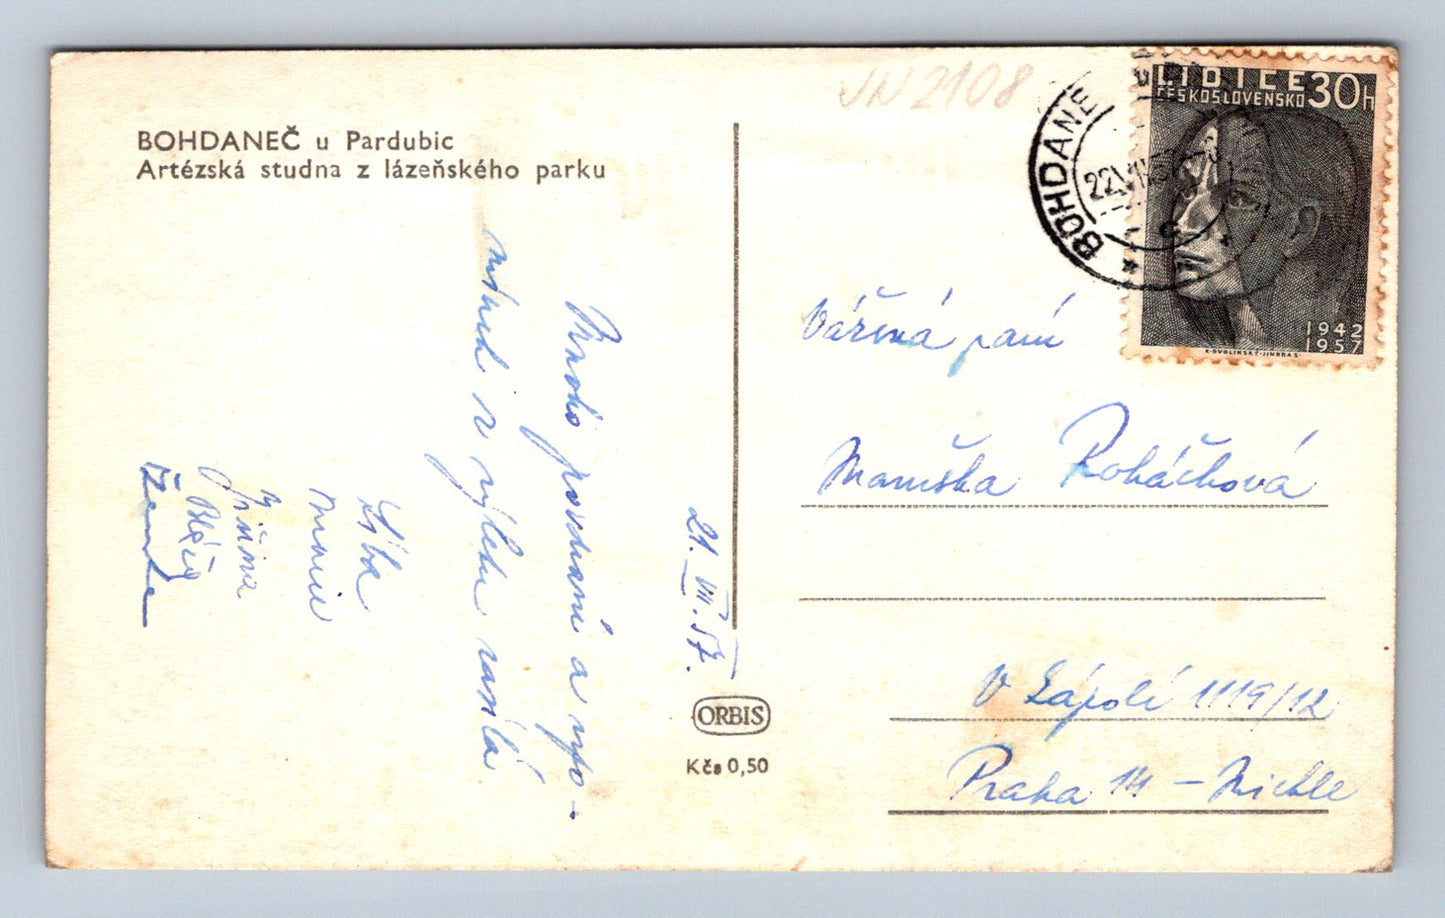 JN 2108
BOHDANEČ u Pardubic
Artézská studna z lázeňského parku
LIDICE 30H
ČESKOSLOVENSKO
1942
1957
K. SVOLINSKÝ-JINDRA S.
BOHDANE
22.VII.57
21. VII. 57.
Mnoho pozdravů a vzpo-
mínek z výletu zasílá
Líba
Marie
Jiřina
Vážená paní
Maruška Roháčková
V Zápolí 1119/12
Praha 14 - Michle
ORBIS
Kčs 0,50